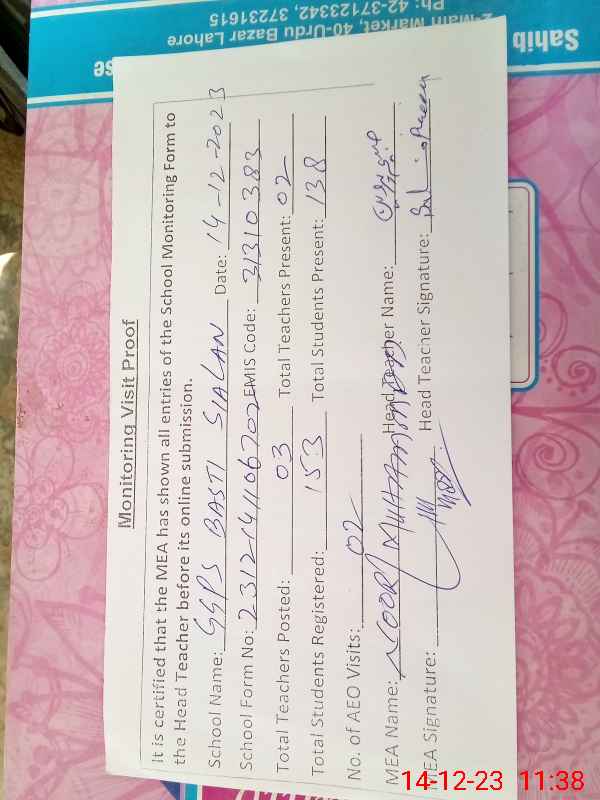 Monitoring Visit Proof
It is certified that the MEA has shown all entries of the School Monitoring Form to
the Head Teacher before its online submission.
School Name: GGPS BASTI SIALAN Date: 14-12-2023
School Form No: 2312141106702 EMIS Code: 31310383
Total Teachers Posted: 03 Total Teachers Present: 02
Total Students Registered: 153 Total Students Present: 138
No. of AEO Visits: 02
MEA Name: NOOR MUHAMMAD Head Teacher Name:
MEA Signature: Head Teacher Signature:
Sahib
2-Main Market, 40-Urdu Bazar Lahore
Ph: 42-37123342, 37231615
14-12-23 11:38